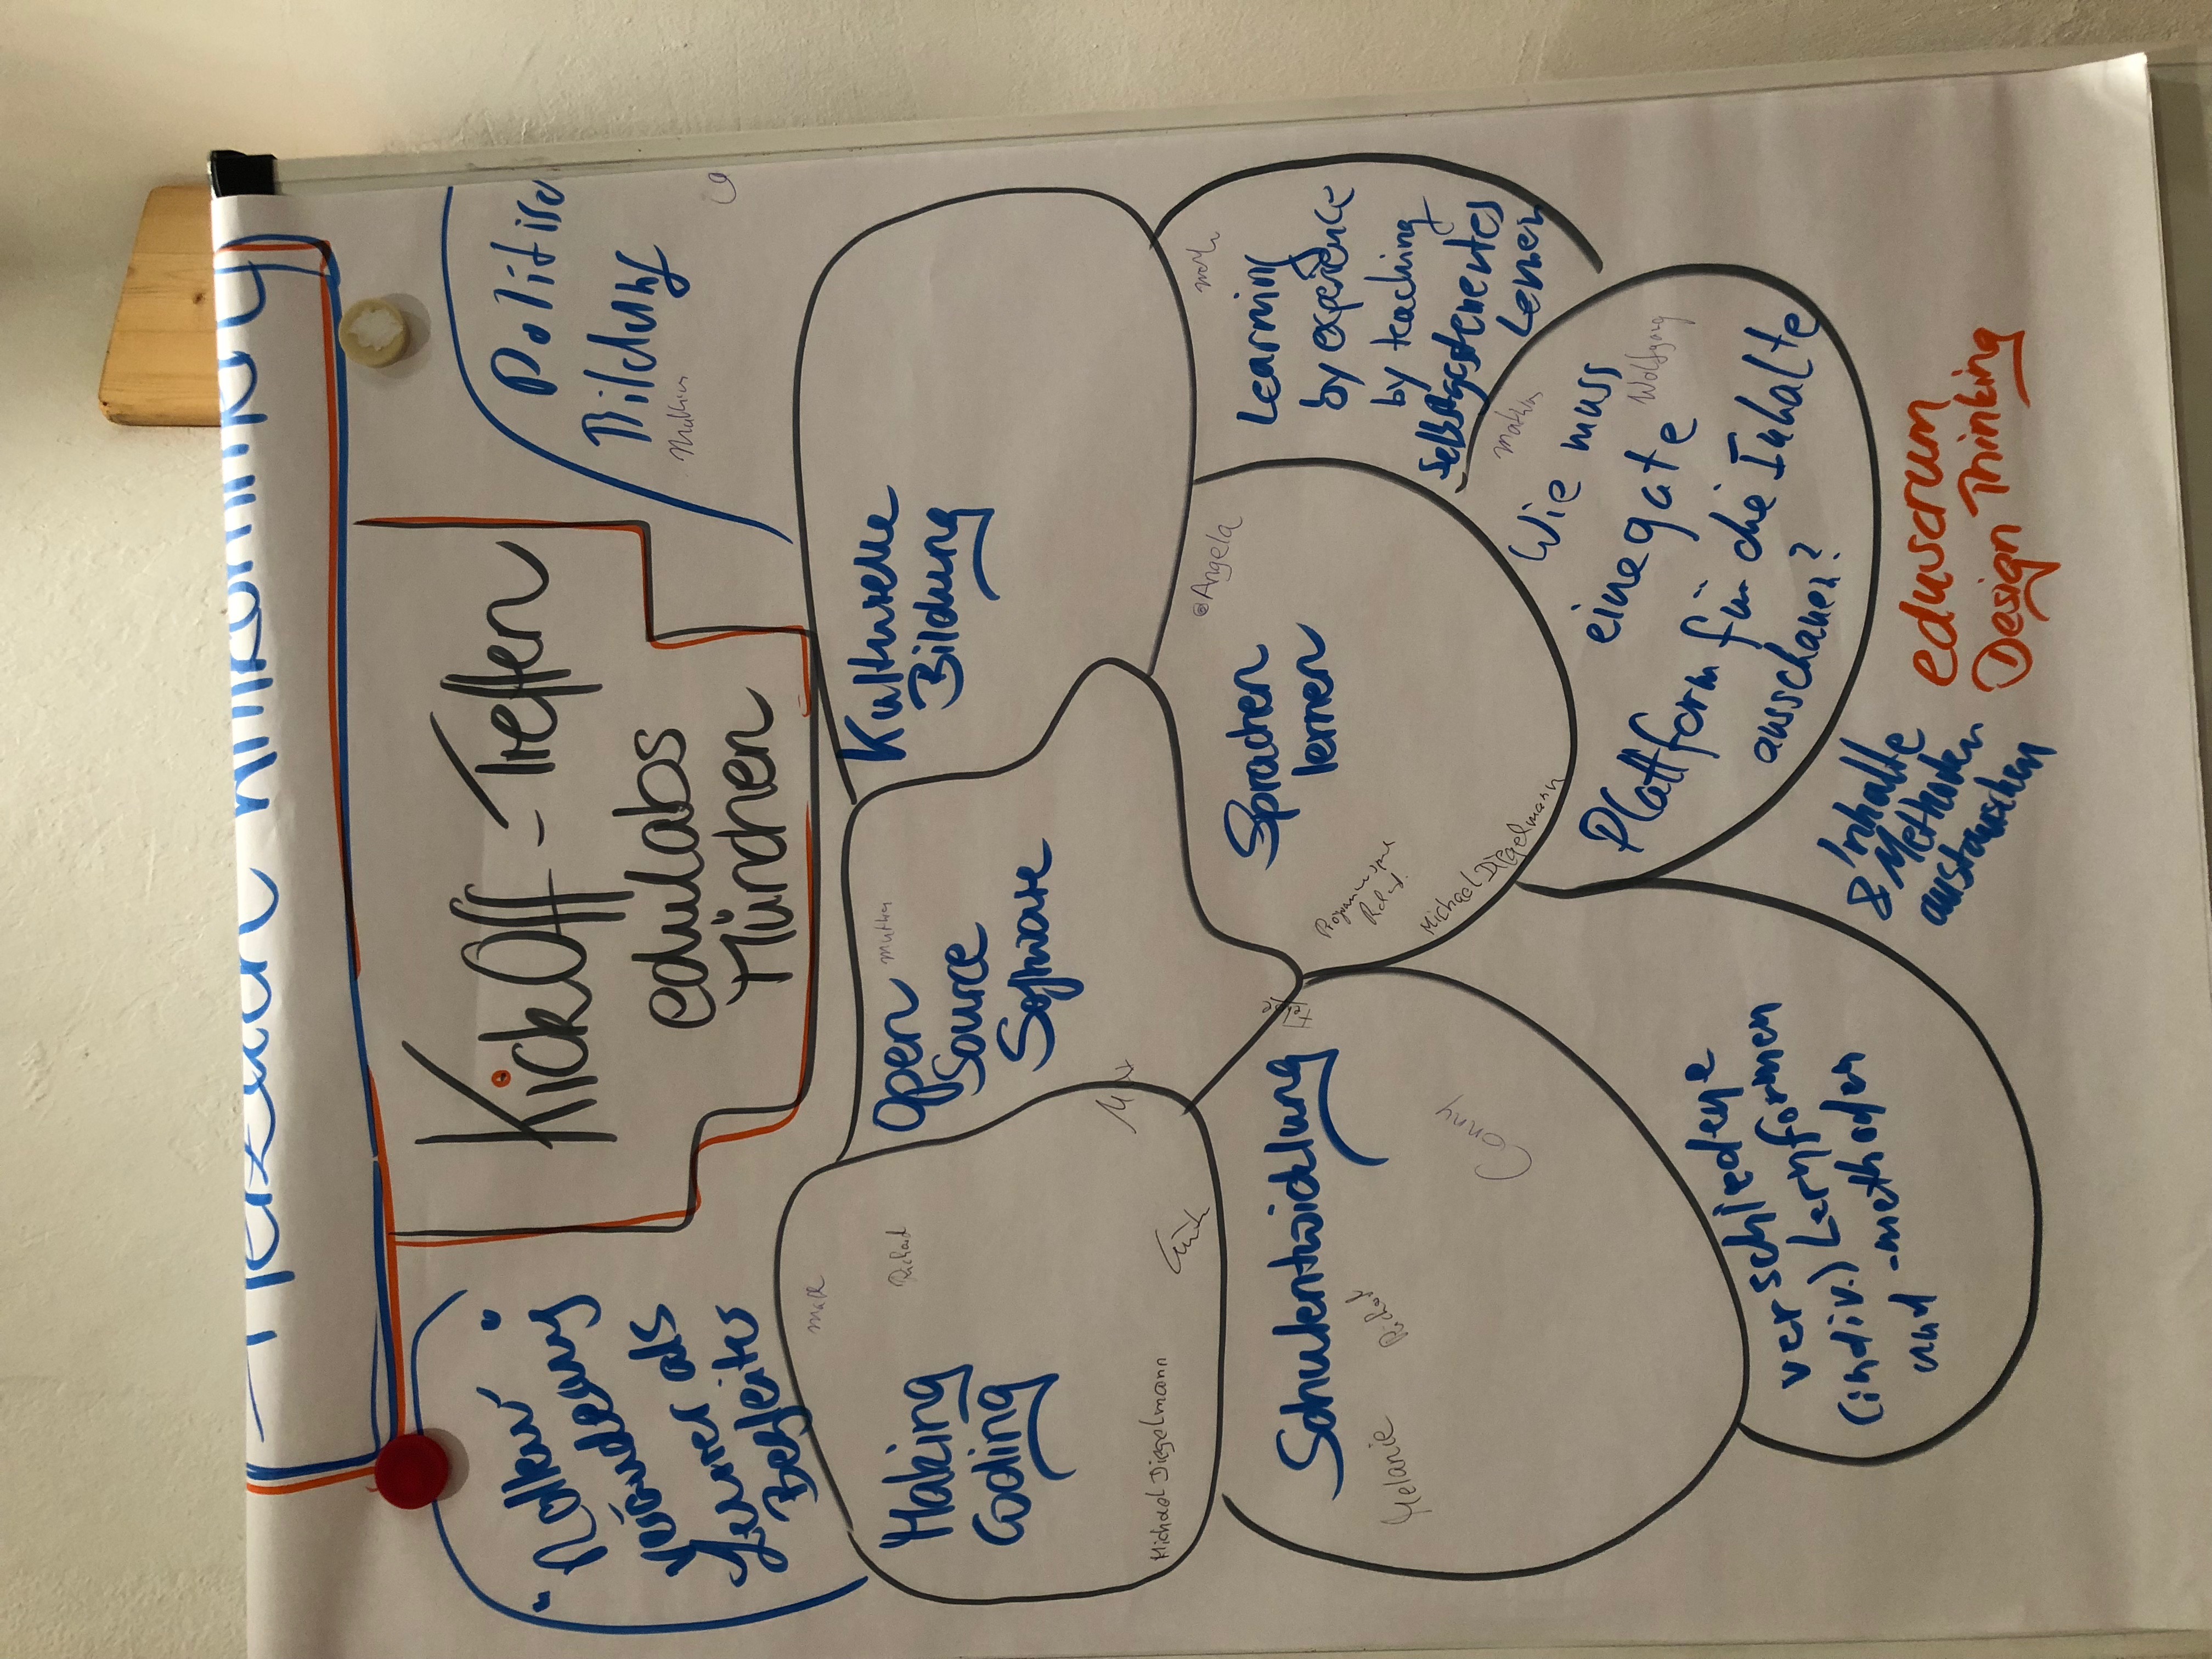 Herzlich Willkommen
Kick Off - Treffen
edulabs
München
"Rollen
veränderung"
Lehrer als
Begleiter
Politisc
Bildung
Mathias
Making
Coding
Richard
Michael Diegelmann
Open
Source
Software
Kulturelle
Bildung
Schulentwicklung
Melanie
Richard
Conny
Felix
Sprachen
lernen
@Angela
Michael Diegelmann
Learning
by experience
by teaching
selbstgesteuertes
Lernen
Mathias
Wie muss
eine gute
Wolfgang
Plattform für die Inhalte
ausschauen?
verschiedene
(indiv.) Lernformen
und -methoden
Inhalte
& Methoden
austauschen
eduscrum
Design Thinking